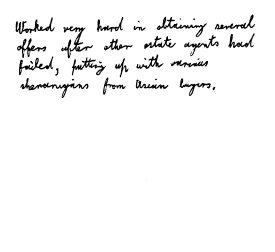 Worked very hard in obtaining several
offers after other estate agents had
failed, putting up with various
shenanigans from Asian buyers.